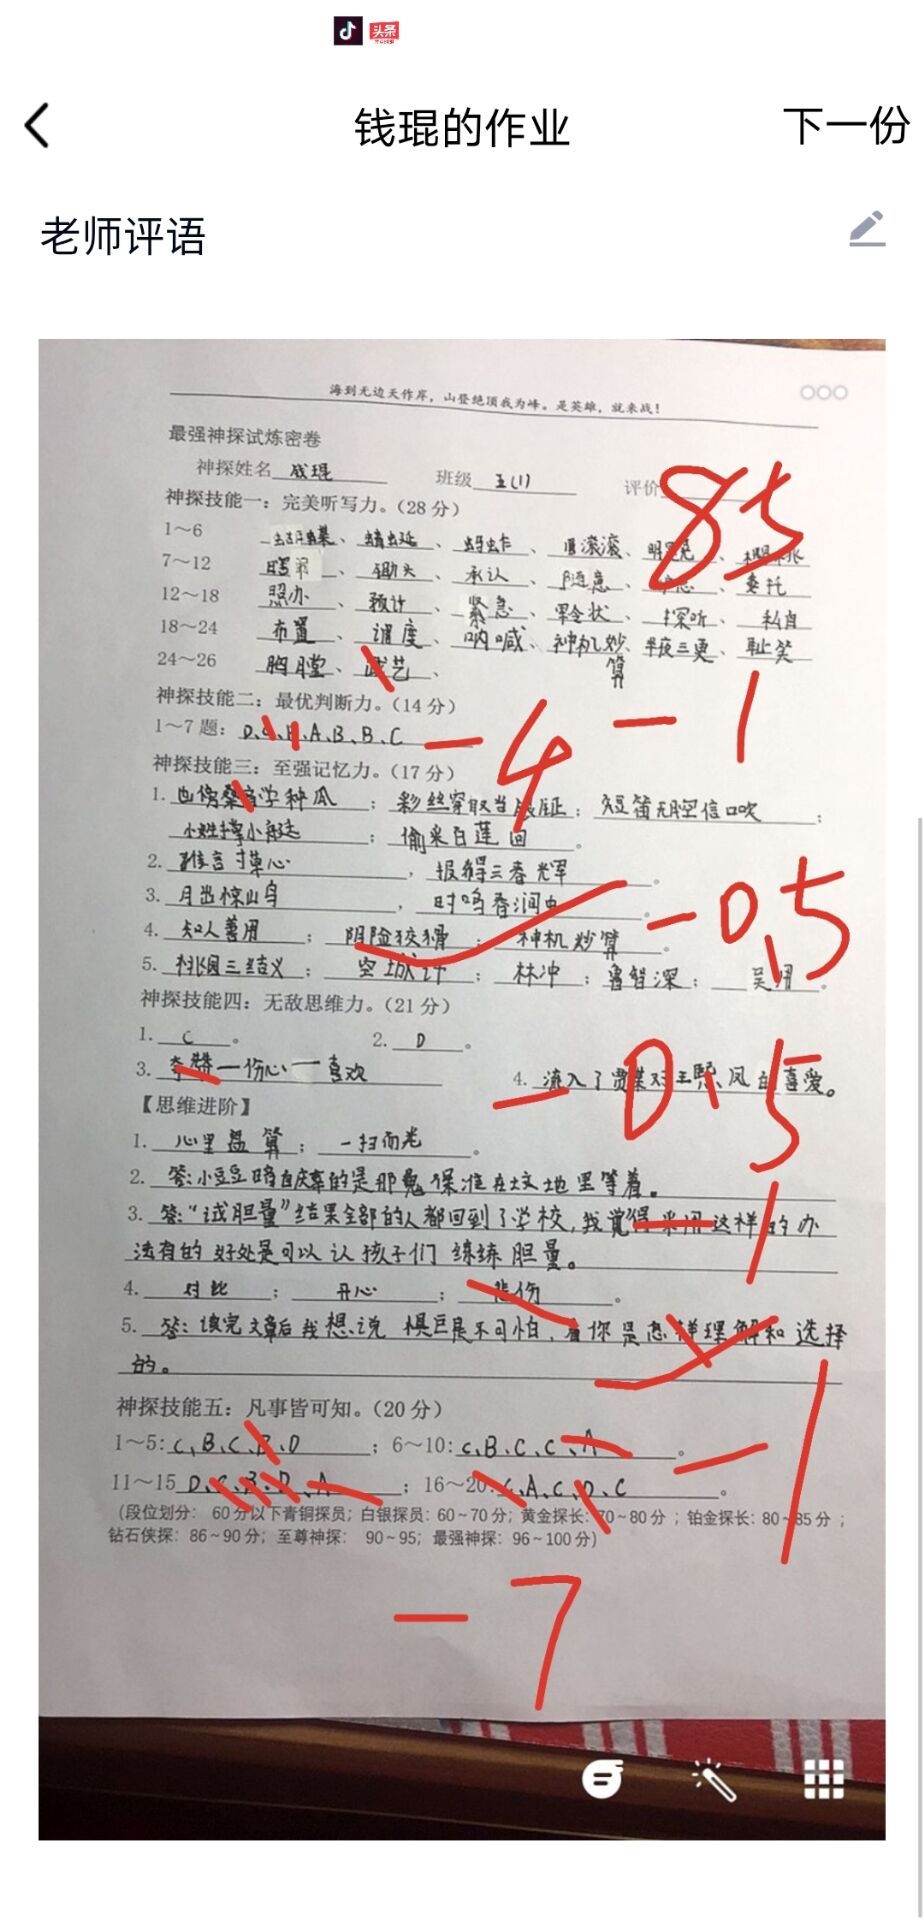 头条
钱琨的作业
下一份
老师评语
海到无边天作岸，山登绝顶我为峰。是英雄，就来战！
最强神探试炼密卷
神探姓名 钱琨 班级 五(1) 评价 85
神探技能一：完美听写力。（28分）
1～6 蝴蝶、蜻蜓、蚂蚱、圆滚滚、明晃晃、樱桃
7～12 瞎闹、锄头、承认、随意、委托
12～18 照办、预计、紧急、军令状、探听、私自
18～24 布置、调度、呐喊、神机妙算、半夜三更、耻笑
24～26 胸膛、武艺、
-1
神探技能二：最优判断力。（14分）
1～7题：D、C、B、A、B、B、C
-4
神探技能三：至强记忆力。（17分）
1. 也傍桑阴学种瓜；彩丝穿取当 ；短笛无腔信口吹；
小娃撑小艇；偷采白莲回。
2. 谁言寸草心，报得三春辉。
3. 月出惊山鸟，时鸣春涧中。
-0.5
4. 知人善用；阴险狡猾；神机妙算。
5. 桃园三结义；空城计；林冲；鲁智深；吴用。
神探技能四：无敌思维力。（21分）
1. C。 2. D。
3. 夸赞—伤心—喜欢 4. 流入了贾母对王熙凤的喜爱。
-0.5
【思维进阶】
1. 心里盘算；一扫而光。
2. 答：小豆豆暗自庆幸的是那鬼保准在坟地里等着。
3. 答：“试胆量”结果全部的人都回到了学校，我觉得采用这样的办
法有的好处是可以让孩子们练练胆量。
4. 对比；开心；悲伤。
5. 答：读完文章后我想说惧巨是不可怕，看你是怎样理解和选择
的。
-1
神探技能五：凡事皆可知。（20分）
1～5：C、B、C、B、D；6～10：C、B、C、C、A。
11～15 D、C、B、D、A；16～20：C、A、C、D、C。
（段位划分： 60分以下青铜探员；白银探员：60～70分；黄金探长：70～80分；铂金探长：80～85分；
钻石侠探：86～90分；至尊神探： 90～95；最强神探：96～100分）
-7